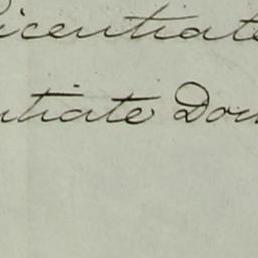 icentiate
ntiate Dou